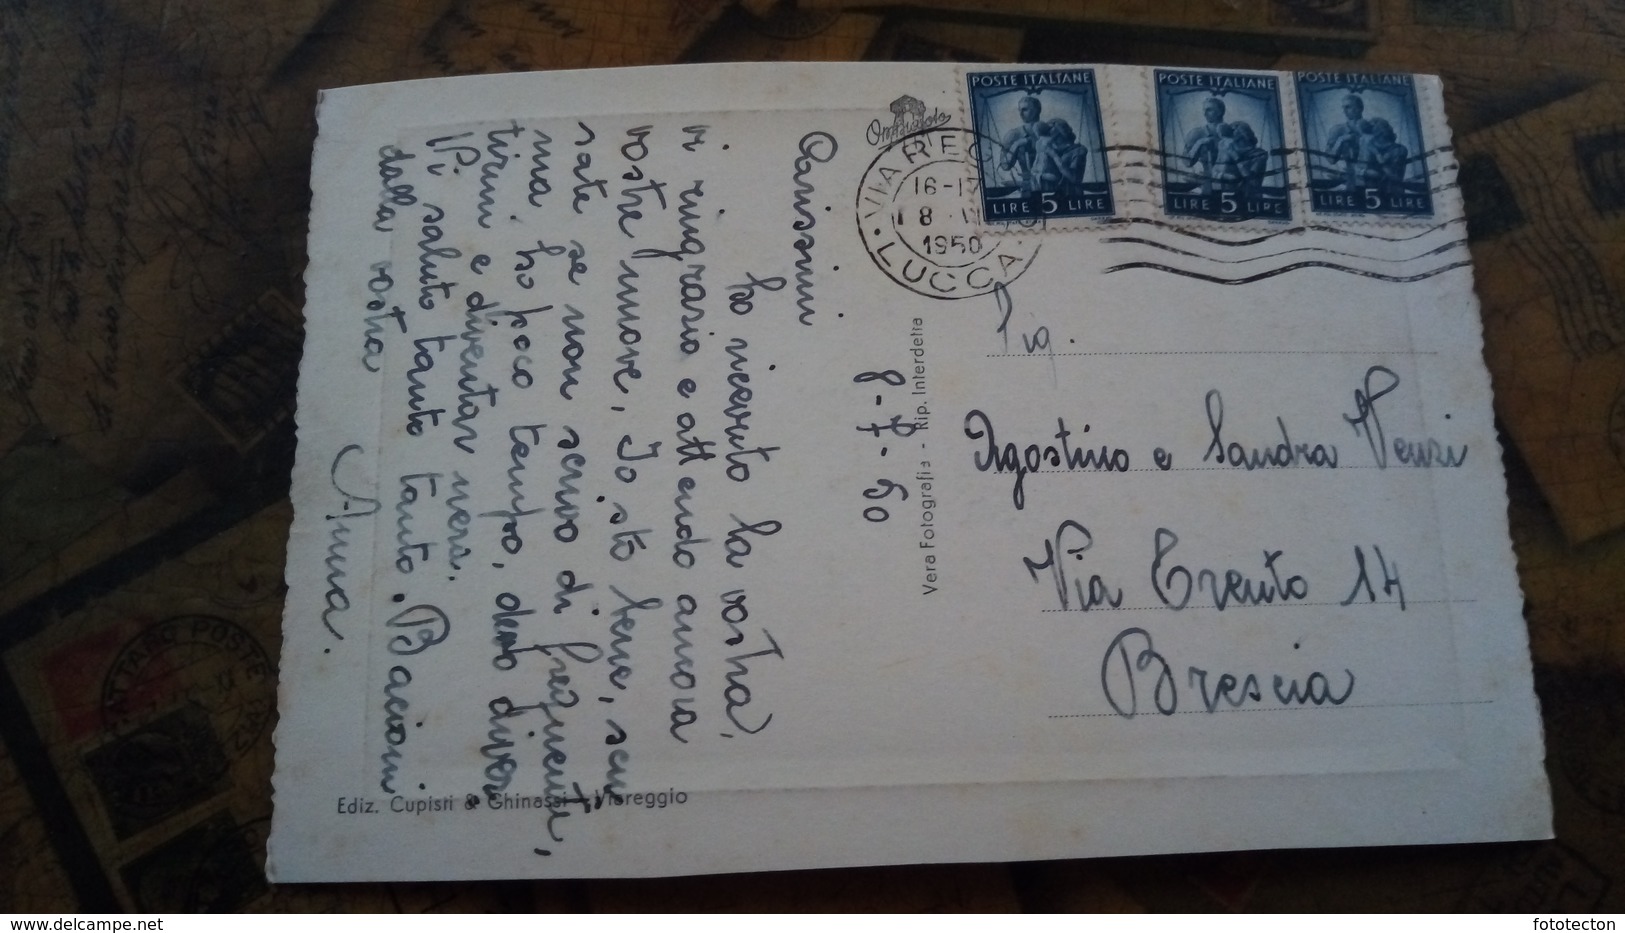 POSTE ITALIANE
LIRE 5 LIRE
POSTE ITALIANE
LIRE 5 LIRE
POSTE ITALIANE
LIRE 5 LIRE
VIAREG
16-17
8
1950
LUCCA
8-7-50
Carissimi
ho ricevuto la vostra,
vi ringrazio e attendo ancora
vostre nuove, Io sto bene, scu
sate se non scrivo di frequente,
ma, ho poco tempo, devo diver
tirmi e diventar nera.
Vi saluto tanto tanto. Bacioni
dalla vostra
Anna.
Sig.
Agostino e Sandra Venzi
Via Trento 14
Brescia
Vera Fotografia - Rip. Interdetta
Ediz. Cupisti & Ghinassi - Viareggio
fototecton